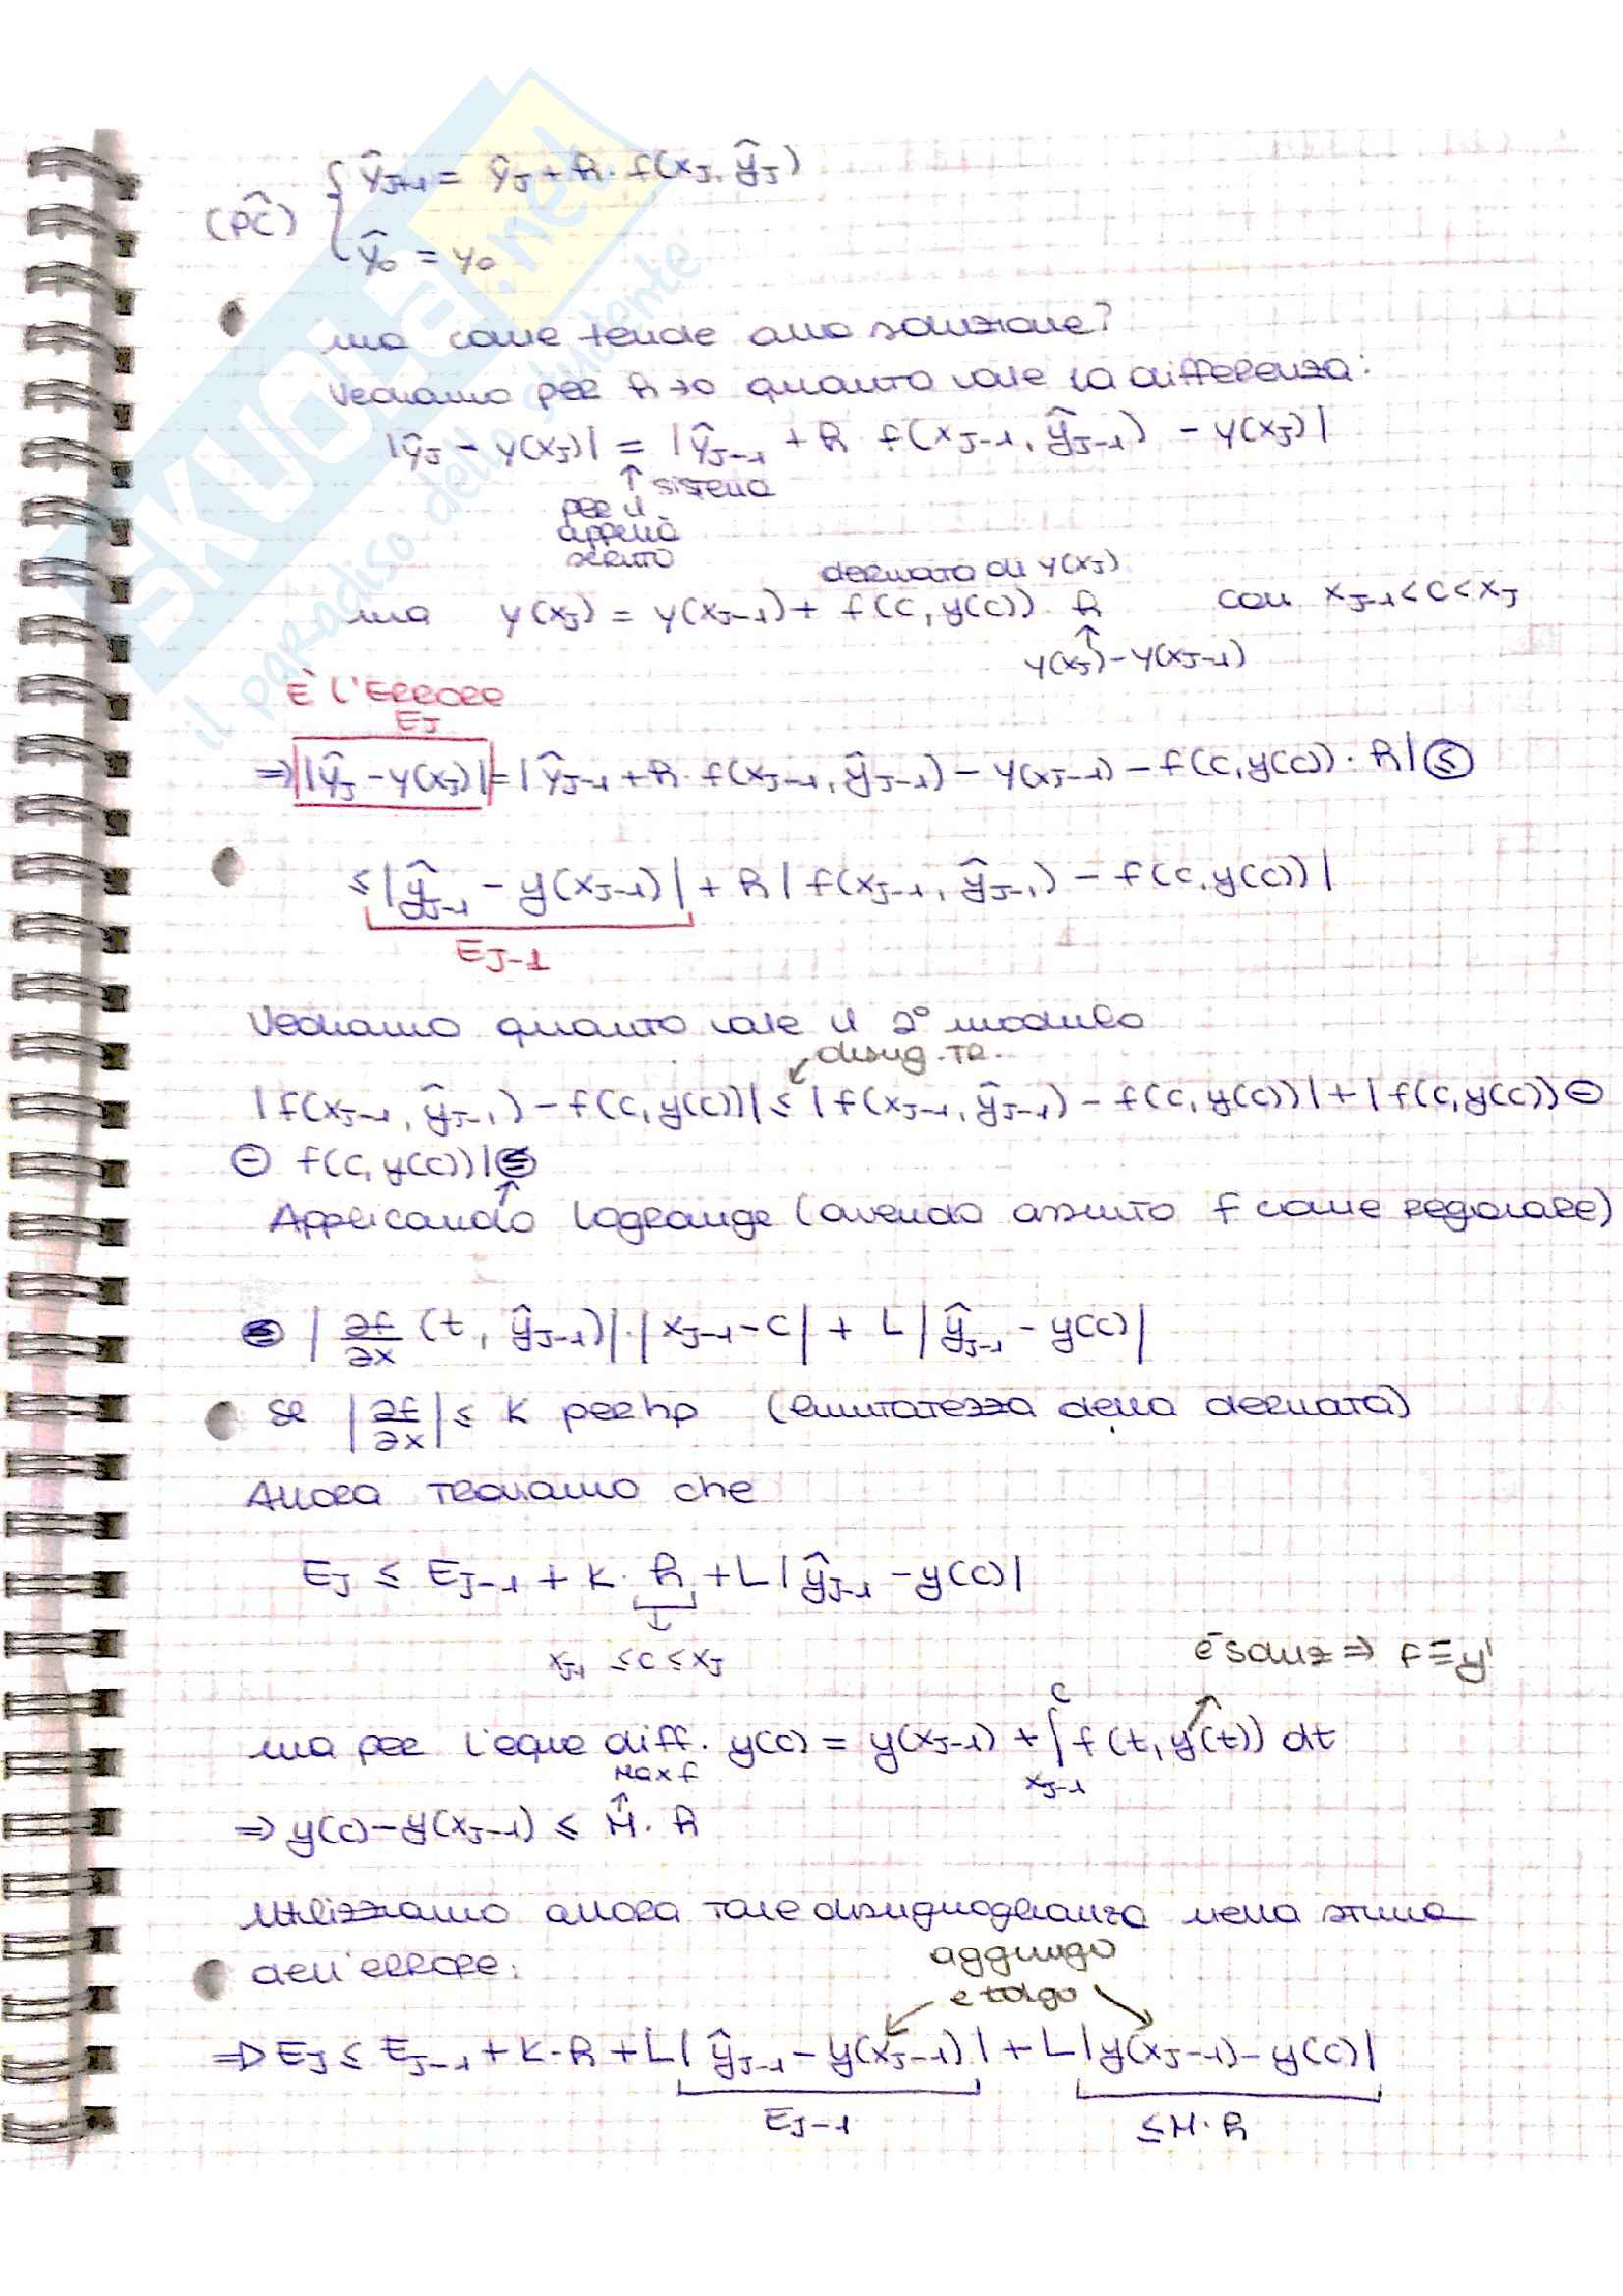 (P̂C) { ŷ_{J+1} = ŷ_J + h · f(x_J, ŷ_J)
ŷ_0 = y_0
ma come tende alla soluzione?
Vediamo per h→0 quanto vale la differenza:
|ŷ_J - y(x_J)| = |ŷ_{J-1} + h f(x_{J-1}, ŷ_{J-1}) - y(x_J)|
↑ sistema
per il
appena
scritto
derivata di y(x_J)
ma y(x_J) = y(x_{J-1}) + f(c, y(c)) h con x_{J-1} < c < x_J
↑
y(x_J) - y(x_{J-1})
È L'ERRORE
E_J
⇒ |ŷ_J - y(x_J)| = |ŷ_{J-1} + h · f(x_{J-1}, ŷ_{J-1}) - y(x_{J-1}) - f(c, y(c)) · h| ≤
≤ |ŷ_{J-1} - y(x_{J-1})| + h |f(x_{J-1}, ŷ_{J-1}) - f(c, y(c))|
E_{J-1}
Vediamo quanto vale il 2° modulo
disug. TR.
|f(x_{J-1}, ŷ_{J-1}) - f(c, y(c))| ≤ |f(x_{J-1}, ŷ_{J-1}) - f(c, y(c))| + |f(c, y(c)) ⊖
⊖ f(c, y(c))| ≤
Applicando Lagrange (avendo assunto f come regolare)
≤ |∂f/∂x (t, ŷ_{J-1})| · |x_{J-1} - c| + L |ŷ_{J-1} - y(c)|
Se |∂f/∂x| ≤ K per hp (limitatezza della derivata)
Allora troviamo che
E_J ≤ E_{J-1} + K · h + L |ŷ_{J-1} - y(c)|
↓
x_{J-1} ≤ c ≤ x_J
è soluz ⇒ f ≡ y'
ma per l'eque diff. y(c) = y(x_{J-1}) + ∫_{x_{J-1}}^{c} f(t, y(t)) dt
Max f
⇒ y(c) - y(x_{J-1}) ≤ M · h
Utilizziamo allora tale disuguaglianza nella stima
dell'errore:
aggiungo
e tolgo
⇒ E_J ≤ E_{J-1} + K · h + L |ŷ_{J-1} - y(x_{J-1})| + L |y(x_{J-1}) - y(c)|
E_{J-1} ≤ M · h
SKUOLA.net
il paradiso dello studente